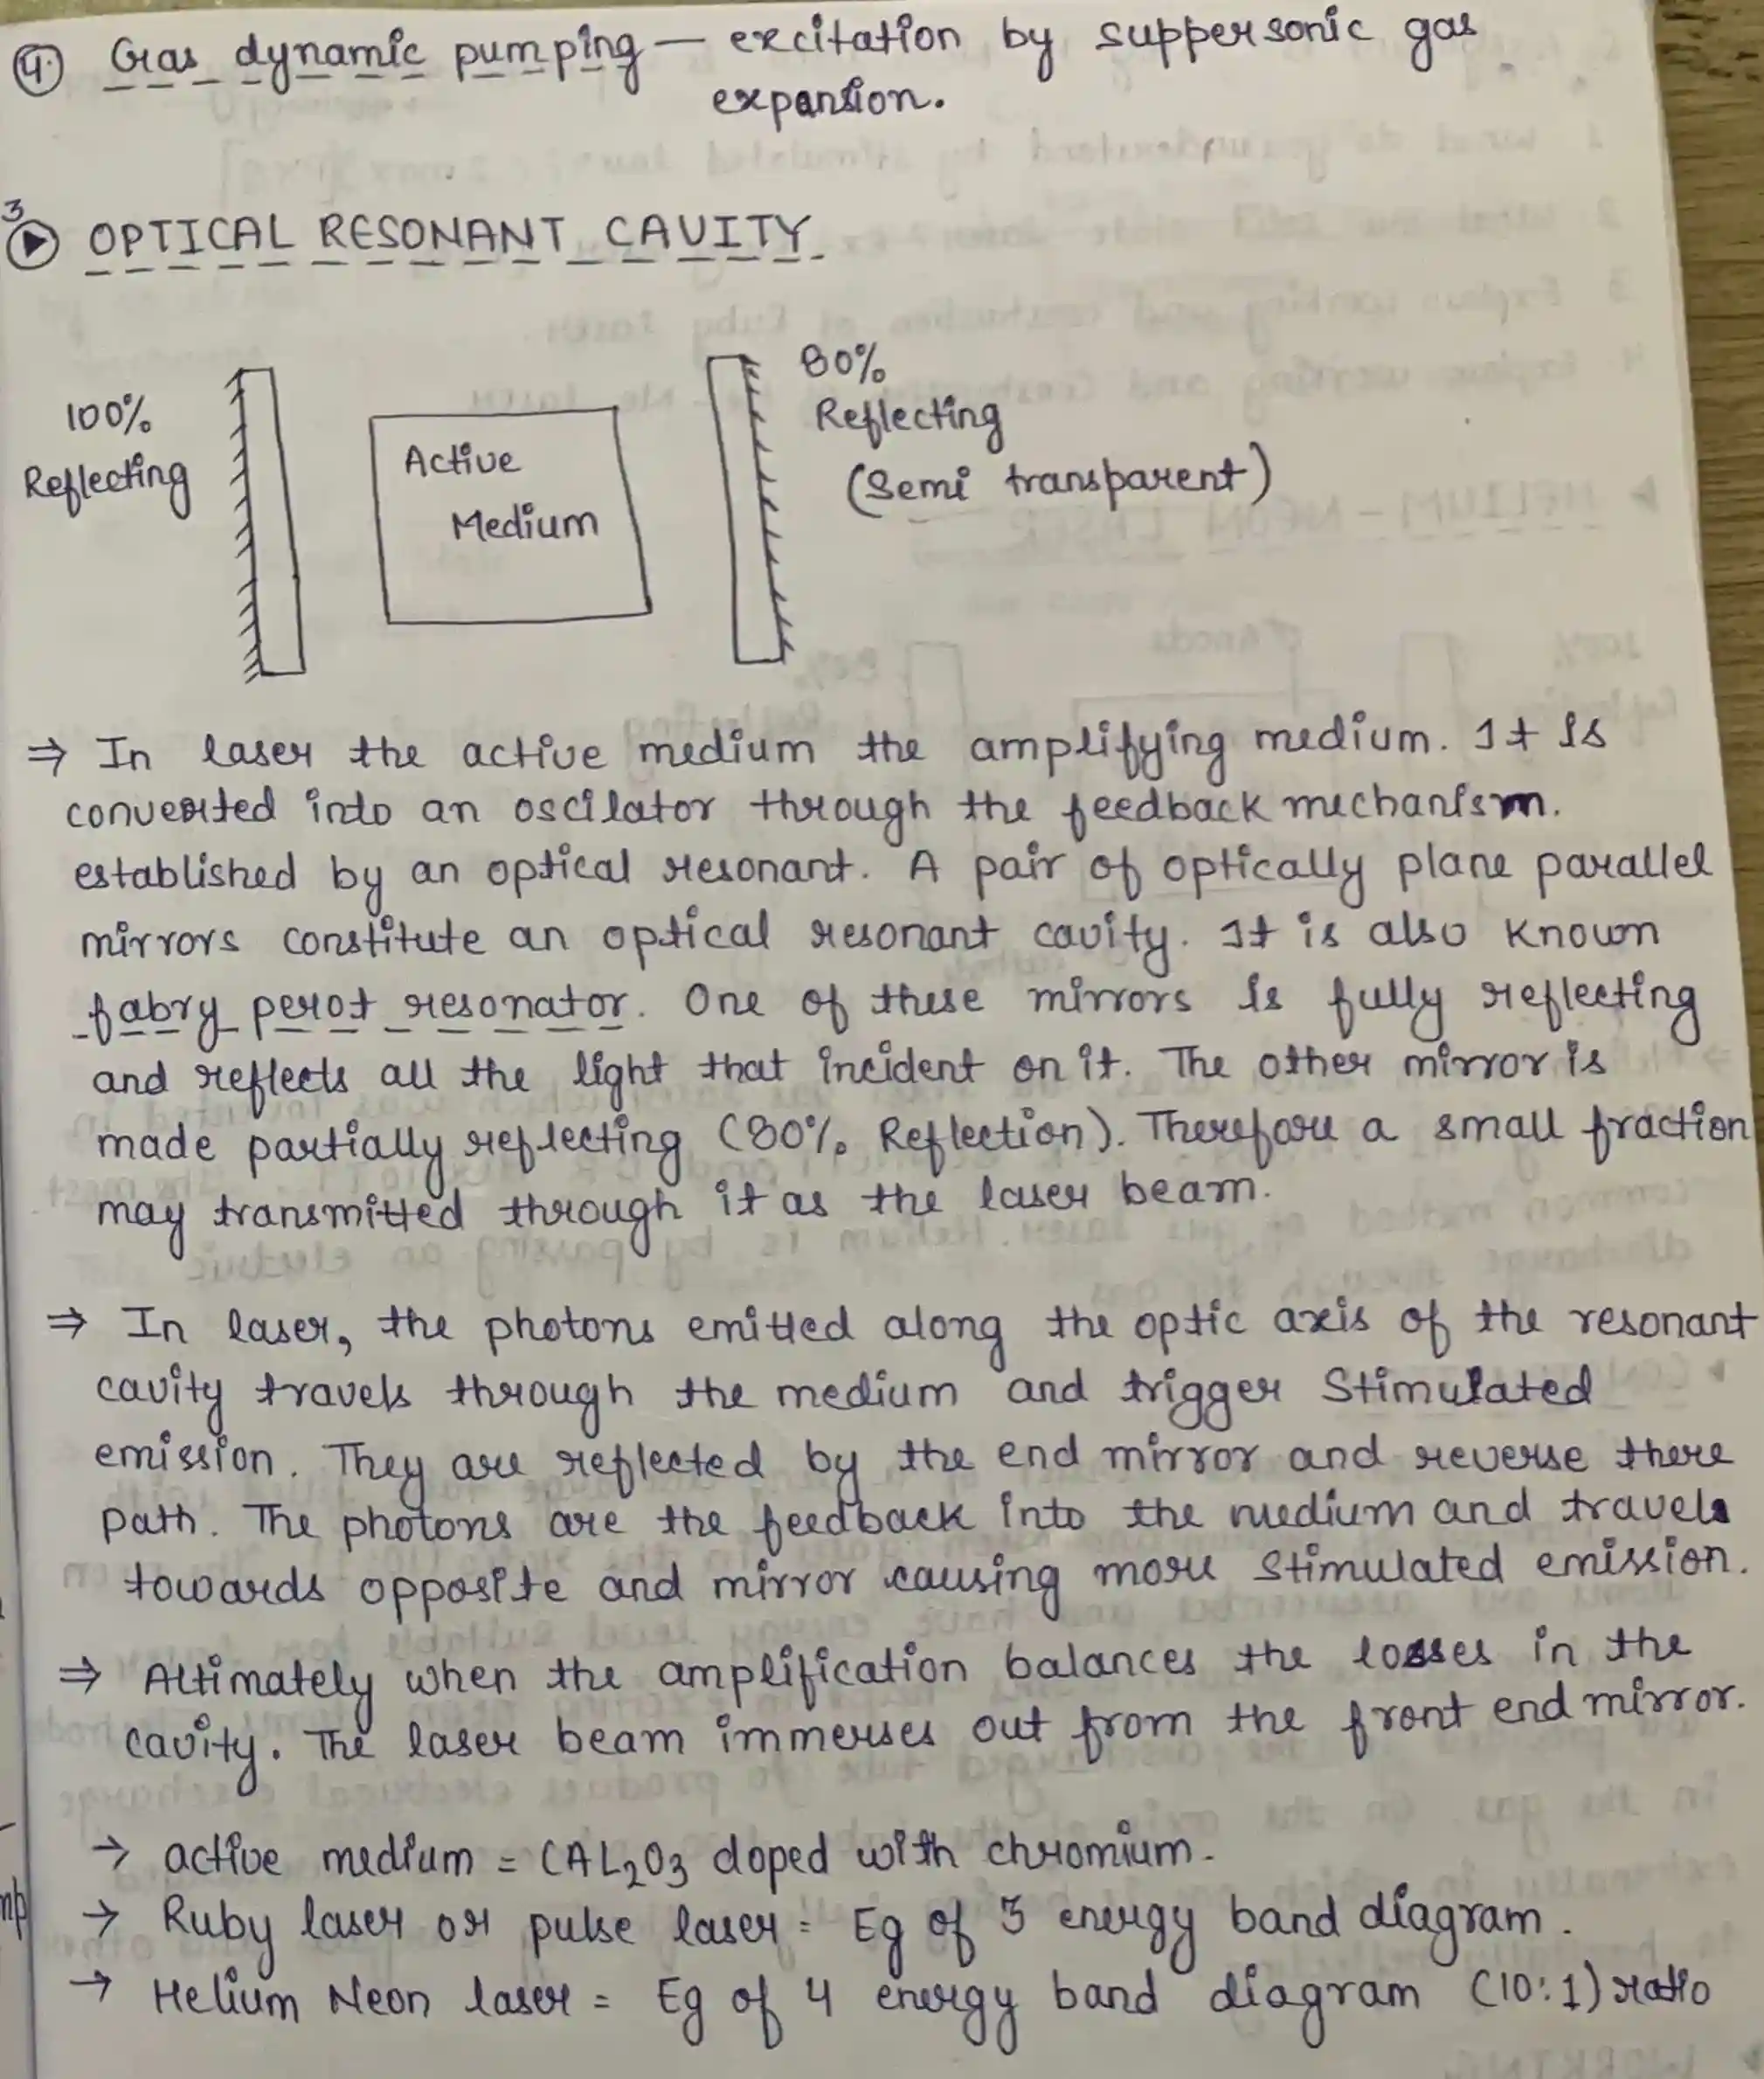 4. Gas dynamic pumping — excitation by suppersonic gas
expansion.
3 OPTICAL RESONANT CAVITY
100%
Reflecting
Active
Medium
80%
Reflecting
(Semi transparent)
⇒ In laser the active medium the amplifying medium. It is
converted into an oscilator through the feedback mechanism.
established by an optical resonant. A pair of optically plane parallel
mirrors constitute an optical resonant cavity. It is also known
fabry perot resonator. One of these mirrors is fully reflecting
and reflects all the light that incident on it. The other mirror is
made partially reflecting (80% Reflection). Therefore a small fraction
may transmitted through it as the laser beam.
⇒ In laser, the photons emitted along the optic axis of the resonant
cavity travels through the medium and trigger Stimulated
emission. They are reflected by the end mirror and reverse there
path. The photons are the feedback into the medium and travels
towards opposite and mirror causing more stimulated emission.
⇒ Altimately when the amplification balances the losses in the
cavity. The laser beam immerses out from the front end mirror.
→ active medium = (AL2O3 doped with chromium.
→ Ruby laser or pulse laser = Eg of 3 energy band diagram.
→ Helium Neon laser = Eg of 4 energy band diagram (10:1) ratio